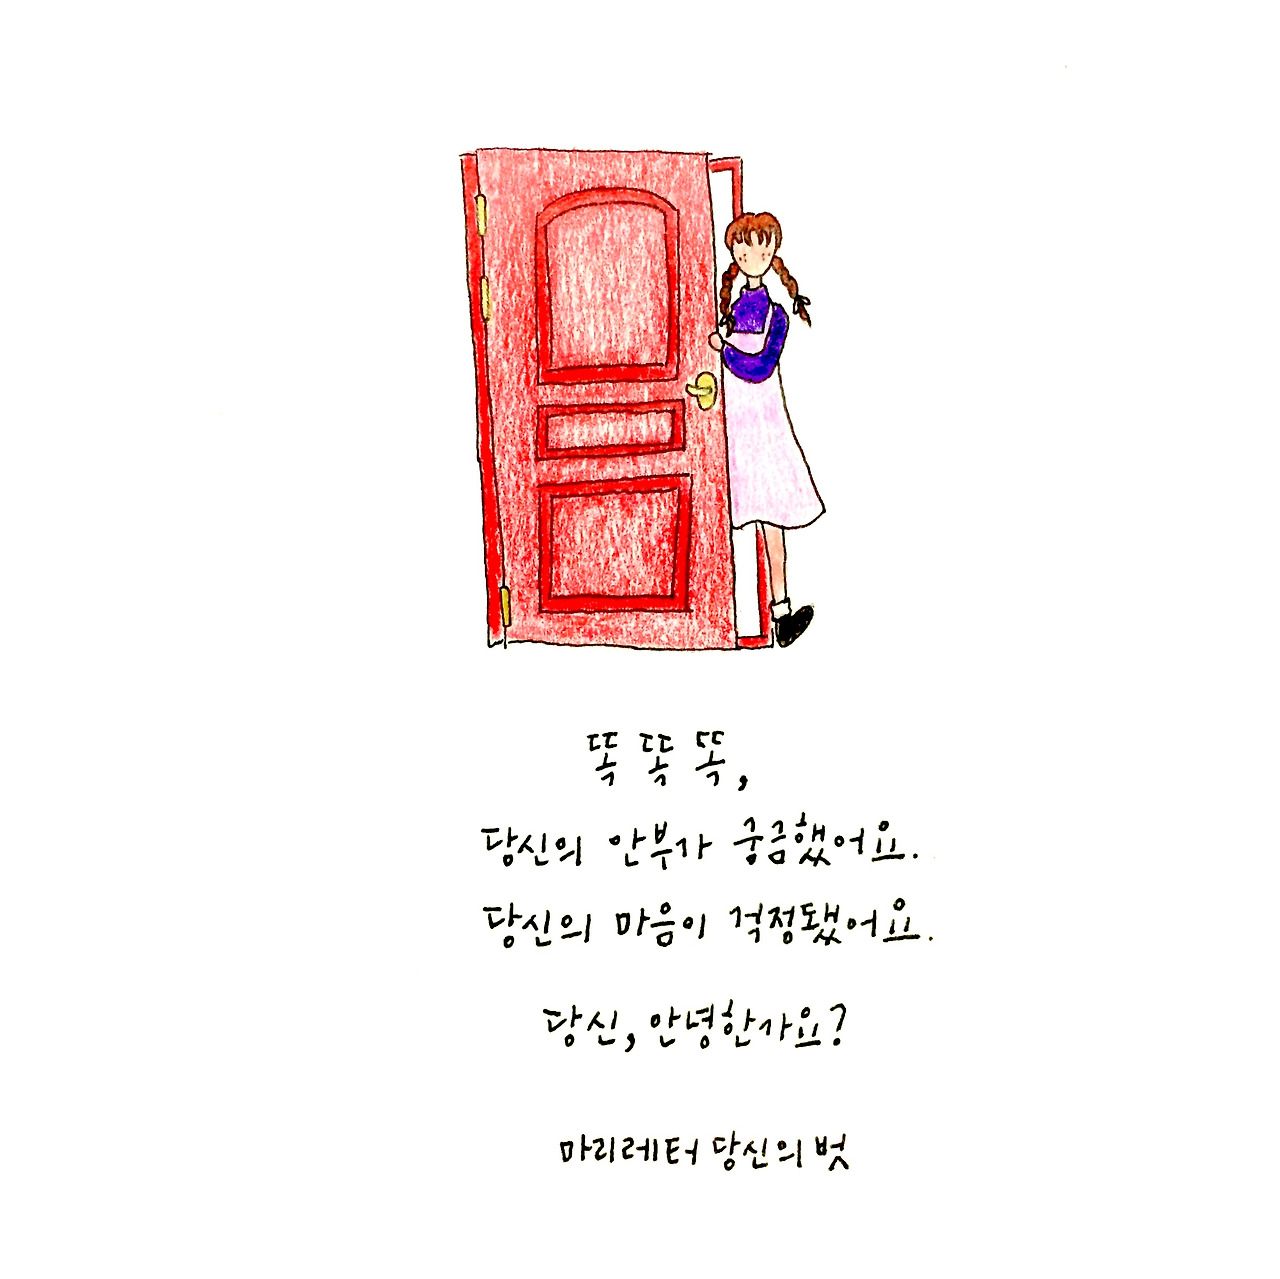 똑 똑 똑,
당신의 안부가 궁금했어요.
당신의 마음이 걱정됐어요.
당신, 안녕한가요?
마리레터 당신의 벗